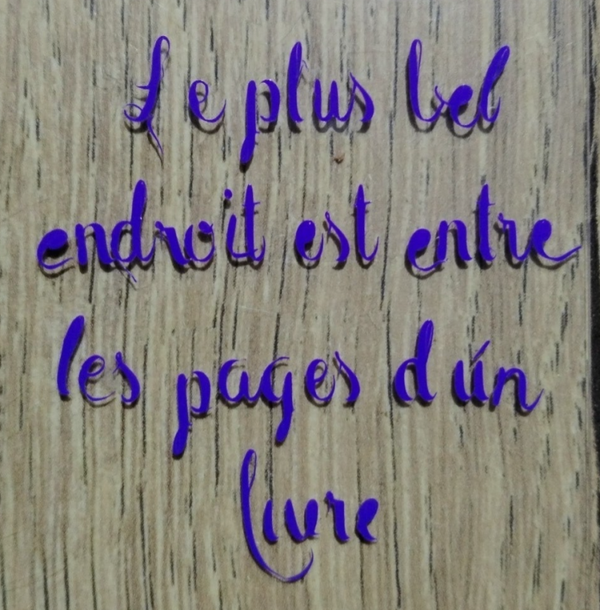 Le plus bel
endroit est entre
les pages d'un
livre